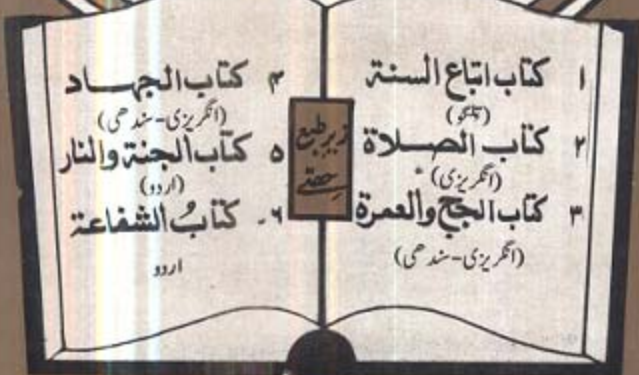 ۱ کتاب اتباع السنۃ
۲ کتاب الصلاۃ
(انگریزی)
۳ کتاب الحج والعمرۃ
(انگریزی-سندھی)
زیر طبع
حصے
۴ کتاب الجہاد
(انگریزی-سندھی)
۵ کتاب الجنۃ والنار
(اردو)
۶- کتابُ الشفاعۃ
اردو